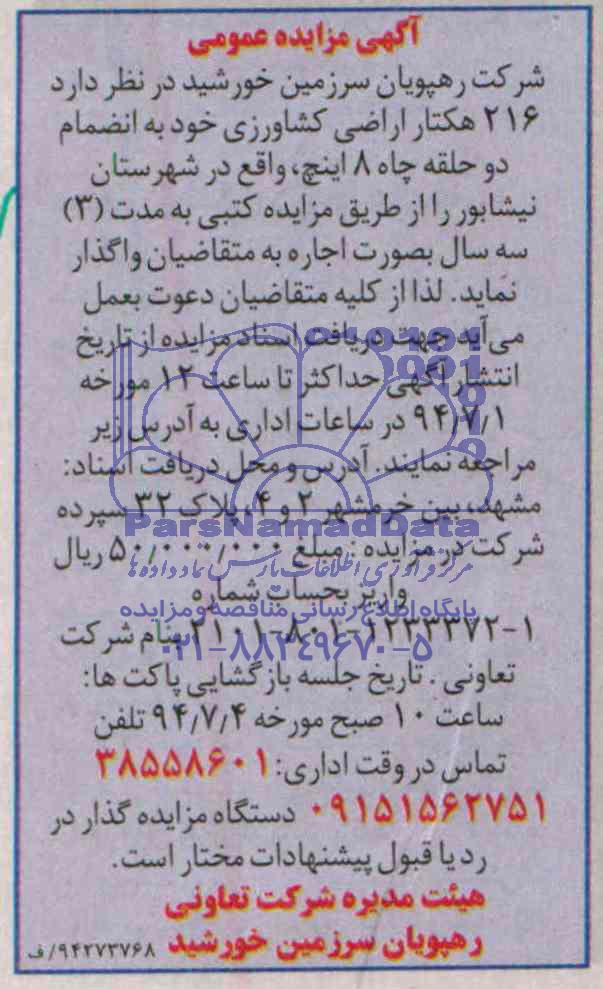 آگهی مزایده عمومی
شرکت رهپویان سرزمین خورشید در نظر دارد
۲۱۶ هکتار اراضی کشاورزی خود به انضمام
دو حلقه چاه ۸ اینچ، واقع در شهرستان
نیشابور را از طریق مزایده کتبی به مدت (۳)
سه سال بصورت اجاره به متقاضیان واگذار
نماید. لذا از کلیه متقاضیان دعوت بعمل
می‌آید جهت دریافت اسناد مزایده از تاریخ
انتشار آگهی حداکثر تا ساعت ۱۲ مورخه
۹۴/۷/۱ در ساعات اداری به آدرس زیر
مراجعه نمایند. آدرس و محل دریافت اسناد:
مشهد، بین خرمشهر ۲ و ۴، پلاک ۳۲ سپرده
ParsNamadData
شرکت در مزایده: مبلغ ۵۰/۰۰۰/۰۰۰ ریال
مرکز فرآوری اطلاعات پارس نماد داده ها
واریز بحساب شماره
پایگاه اطلاع رسانی مناقصه و مزایده
۲۱۰۱-۸۰۱-۱۲۳۳۳۷۲-۱ بنام شرکت
۰۲۱-۸۸۳۴۹۶۷۰-۵
تعاونی. تاریخ جلسه بازگشایی پاکت ها:
ساعت ۱۰ صبح مورخه ۹۴/۷/۴ تلفن
تماس در وقت اداری: ۳۸۵۵۸۶۰۱
۰۹۱۵۱۵۶۲۷۵۱ دستگاه مزایده گذار در
رد یا قبول پیشنهادات مختار است.
هیئت مدیره شرکت تعاونی
رهپویان سرزمین خورشید
۹۴۲۷۳۷۶۸/ف